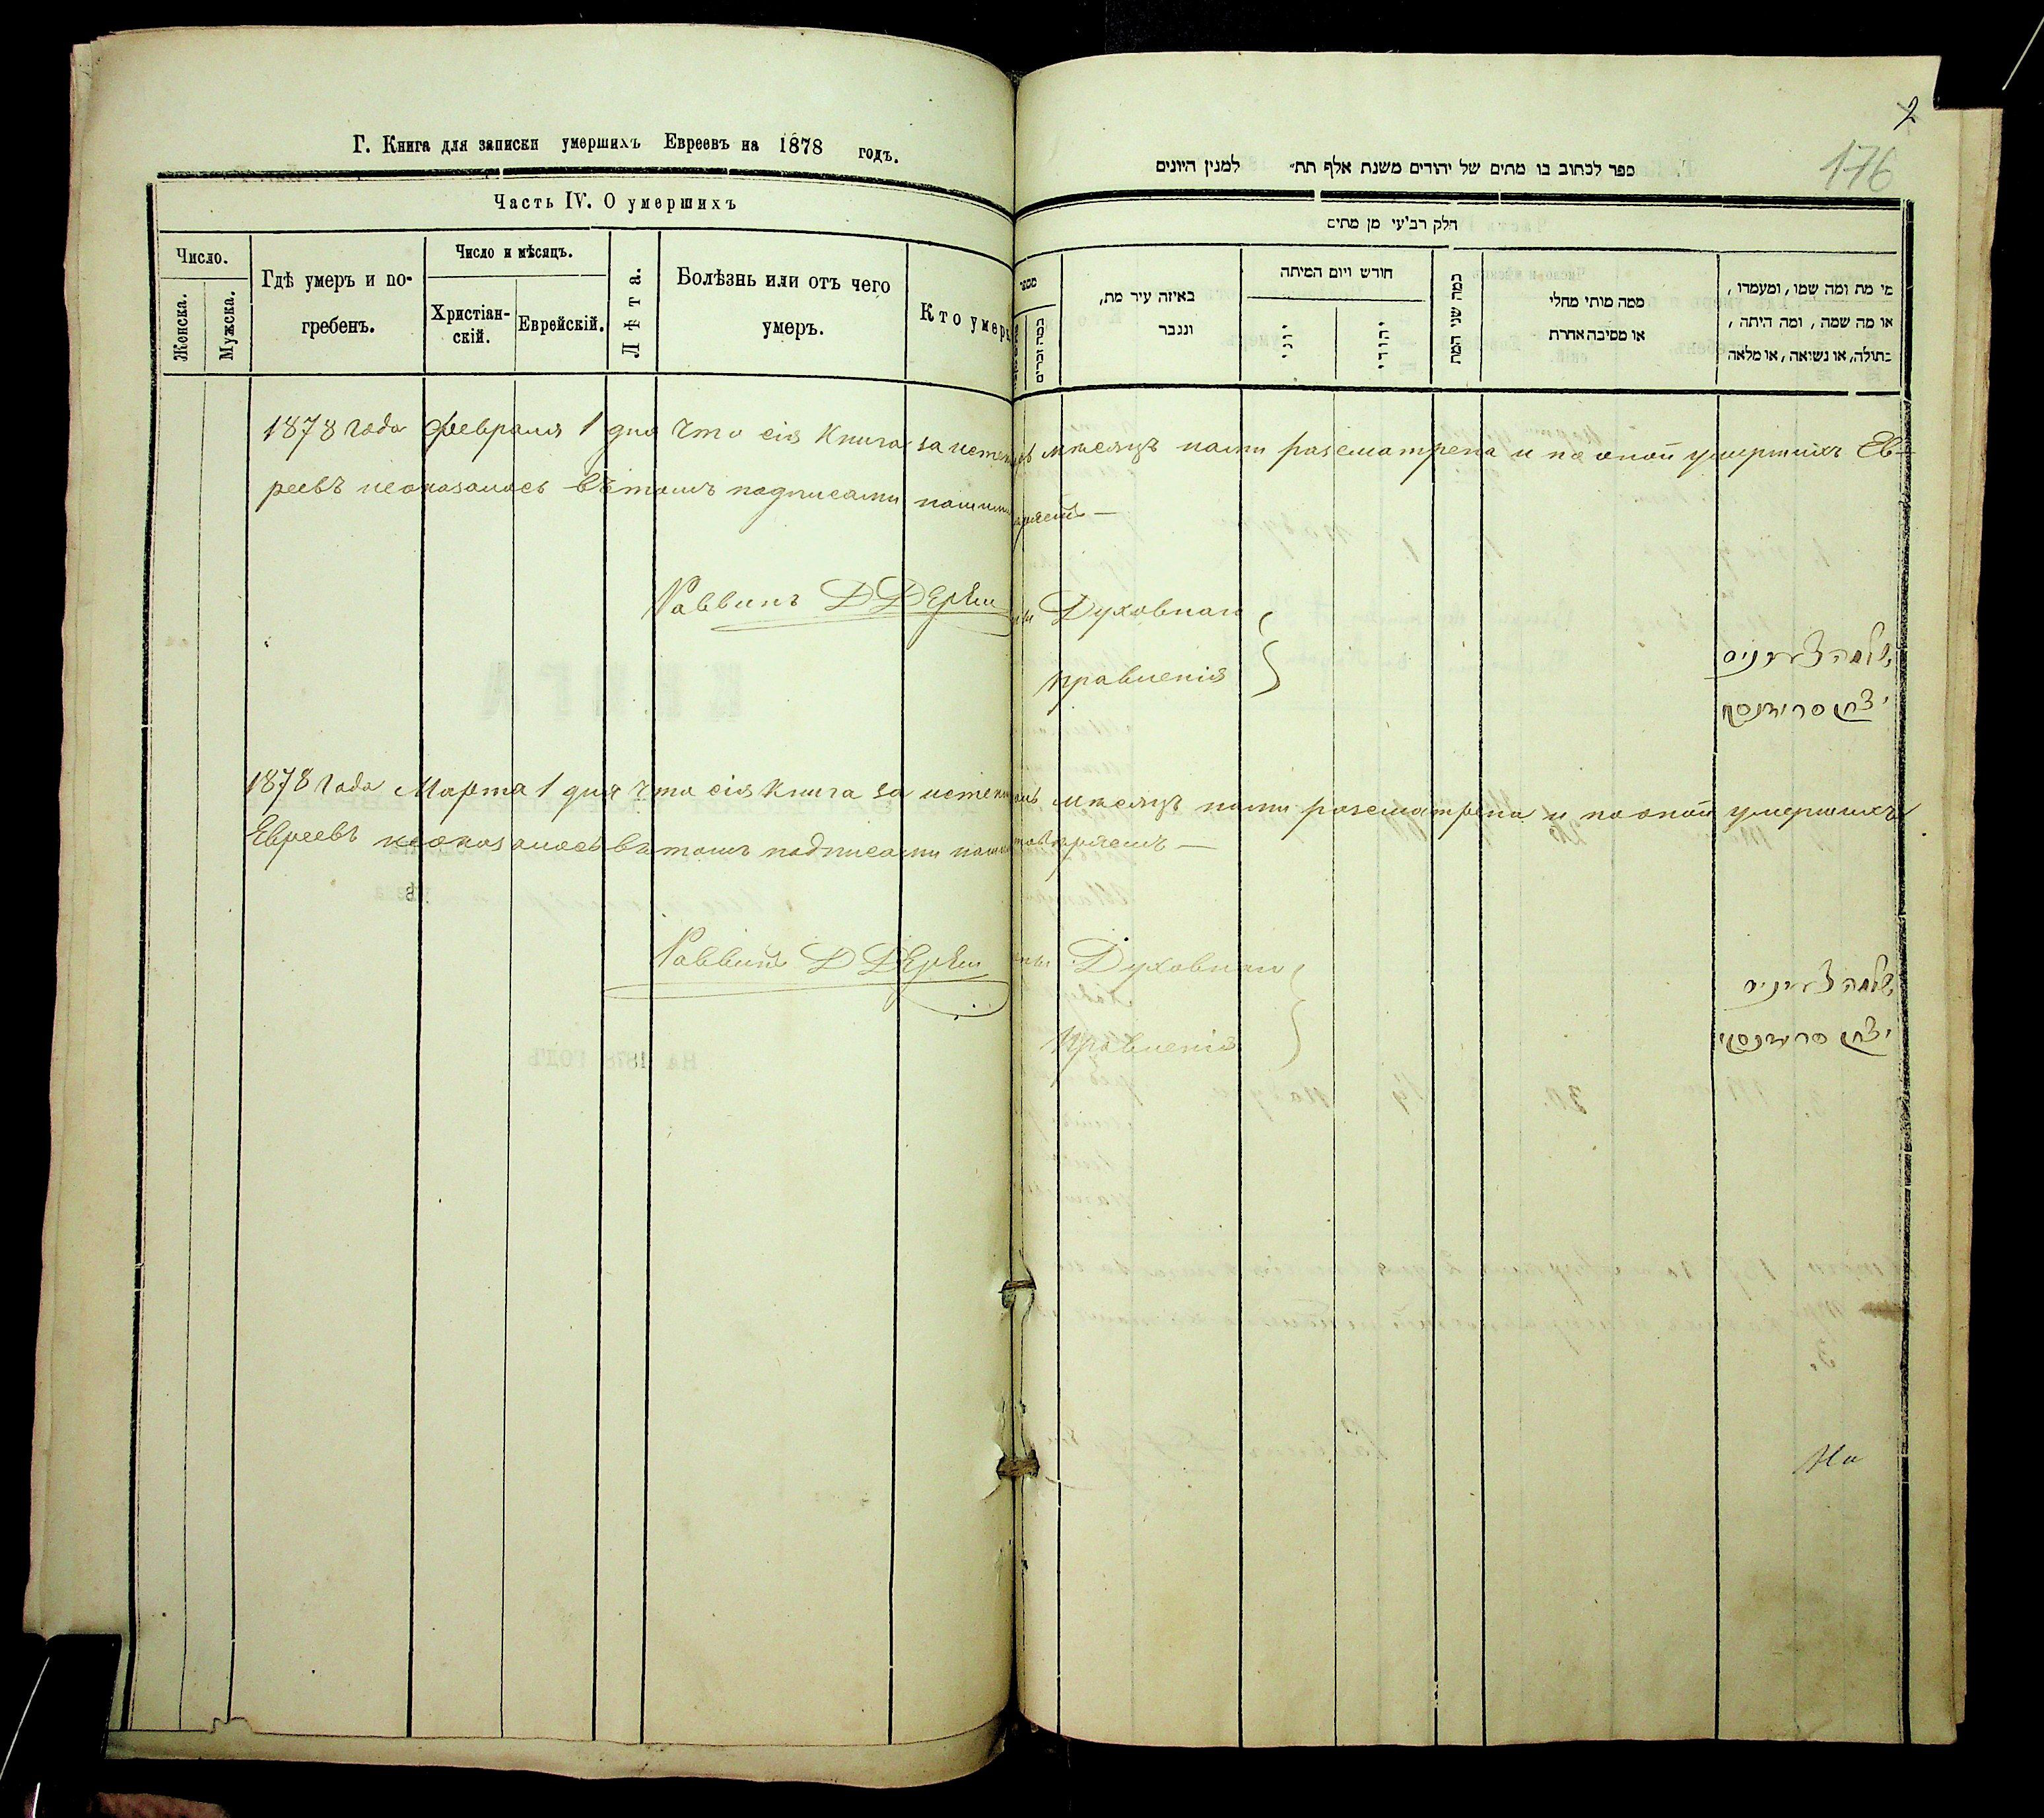 2
176
Г. Книга для записки умершихъ Евреевъ на 1878 годъ.
ספר לכתוב בו מתים של יהודים משנת אלף תת״ למנין היונים
Часть IV. О умершихъ
חלק רב'עי מן מתים
Число.
Женска.
Мужска.
Гдѣ умеръ и по-
гребенъ.
Число и мѣсяцъ.
Христіан-
скій.
Еврейскій.
Лѣта.
Болѣзнь или отъ чего
умеръ.
Кто умер
מספר
כמה זכרים
באיזה עיר מת,
ונגבר
חודש ויום המיתה
יוני
יהודי
כמה שני המת
ממה מותי מחלי
או מסיבה אחרת
מי מת ומה שמו, ומעמדו,
או מה שמה, ומה היתה,
בתולה, או נשואה, או מלאה
1878 года февраля 1 дня что сія книга за истек мѣсяцъ нами разсматрена и по оной умершихъ Ев-
реевъ неоказалось въ томъ подписами нашими
Раввинъ Д
Духовнаго
правленія
שלמה
יצחק
1878 года Марта 1 дня что сія книга за истек мѣсяцъ нами разсматрена и по оной умершихъ
Евреевъ неоказалось въ томъ подписами наши
Раввинъ Д
Духовнаго
правленія
שלמה
יצחק
На